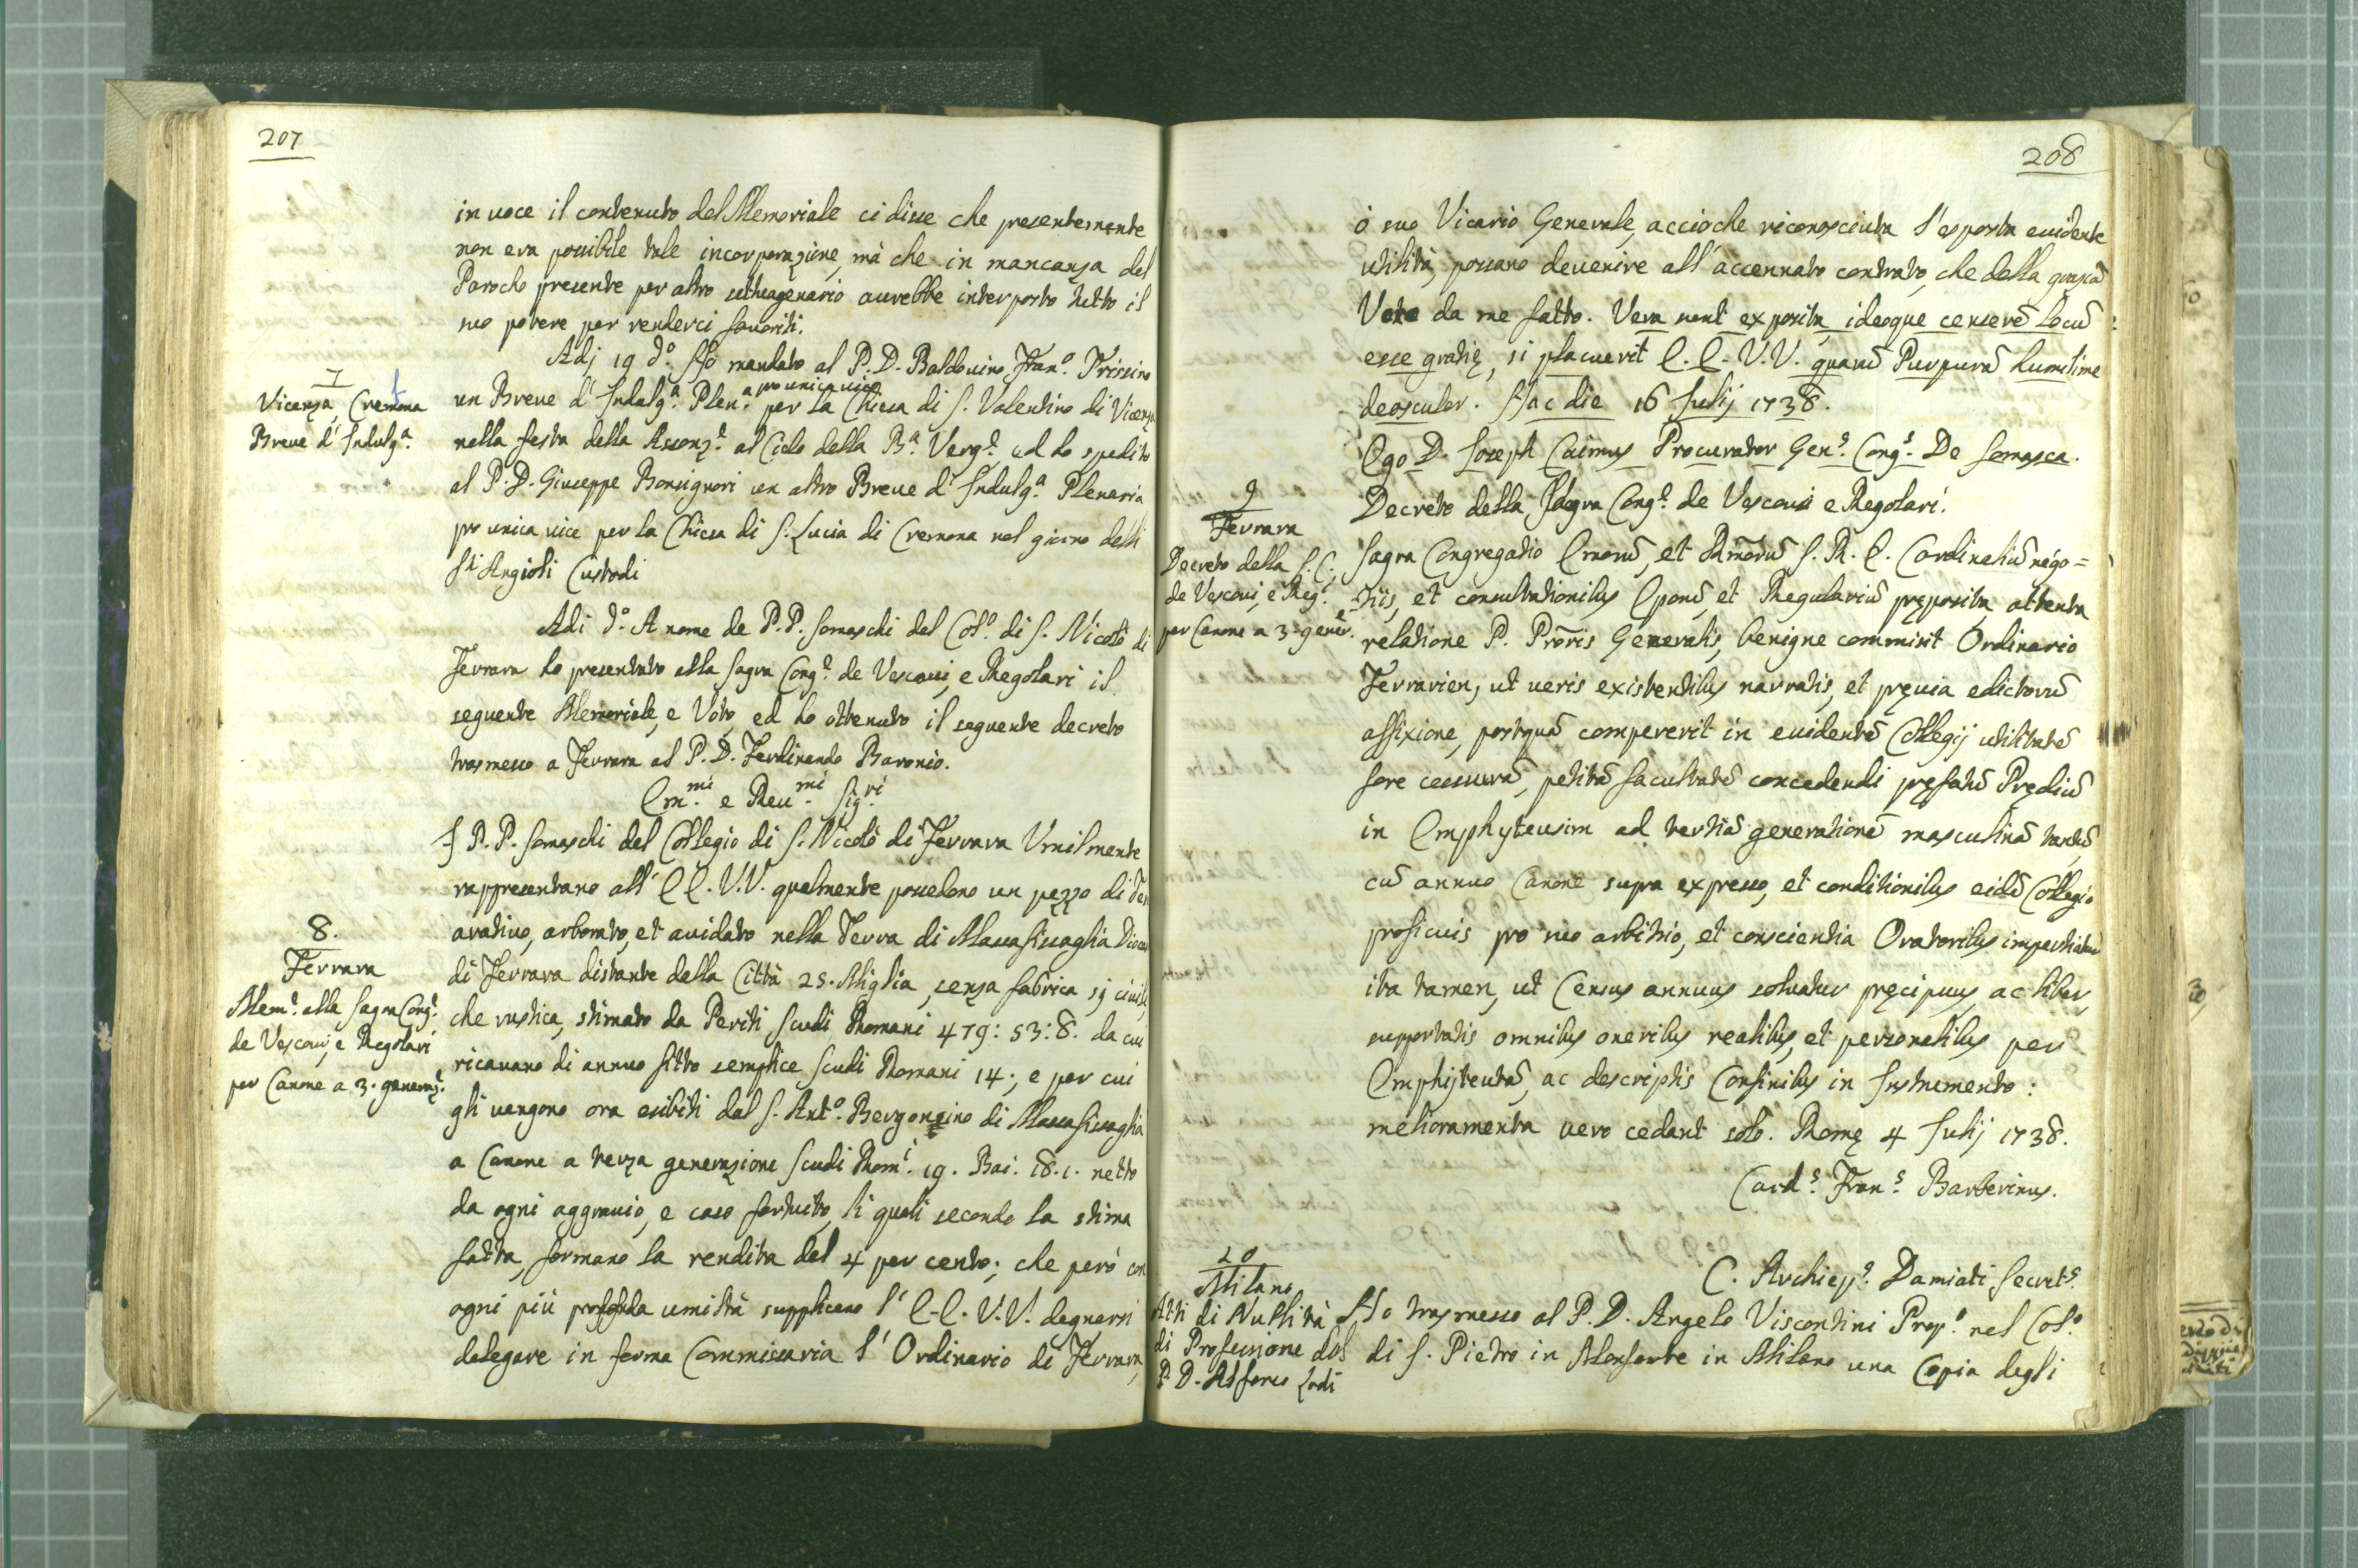 207
in uoce il contenuto del Memoriale ci disse che presentemente
non era possibile tale incorporazione, mà che in mancanza del
Parocho presente per altro settuagenario aurebbe interposto tutto il
suo potere per renderci fauoriti.
Adj 19 dº. Hò mandato al P. D. Baldouino Franº. Trissino
pro unica uice
un Breue d' Indulgª. Plenª. per la Chiesa di S. Valentino di Vicenza
7
Vicenza, Cremona
Breue d' Indulgª
nella festa della Assonze. al Cielo della Bª. Verge. ed ho spedito
al P. D. Giuseppe Bonsignori un altro Breue d' Indulgª. Plenaria
pro unica uice per la Chiesa di S. Lucia di Cremona nel giorno delli
Sti Angioli Custodi
Adi dº. A nome de P.P. Somaschi del Colº. di S. Nicolò di
Ferrara ho presentato alla Sagra Conge. de Vescoui, e Regolari il
seguente Memoriale, e Voto, ed ho ottenuto il seguente decreto
trasmesso a Ferrara al P. D. Ferdinando Baronio.
Em.mi e Reu.mi Sig.ri
I P. P. Somaschi del Collegio di S. Nicolò di Ferrara Vmilmente
rappresentano all' E E. V.V. qualmente possedono un pezzo di Ter
8.
Ferrara
Meme. alla Sagra Conge.
de Vescoui, e Regolari
per Canone a 3. generaze.
aratiuo, arborato, et auidato nella Terra di Massafiscaglia Dioces
di Ferrara distante dalla Città 25. Miglia, senza fabrica sj ciuile,
che rustica, stimato da Periti Scudi Romani 479: 53: 8. da cui
ricauano di annuo fitto semplice Scudi Romani 14., e per cui
gli uengono ora esibiti dal S. Antº. Bergonzino di Massafiscaglia
a Canone a terza generazione Scudi Romi. 19. Bai. 18.1. netto
da ogni aggrauio, e caso fortuito, li quali secondo la stima
fatta, formano la rendita del 4 per cento; che però con
ogni più profonda umiltà supplicano l' E. E. V. V. degnarsi
delegare in forma Commissaria l' Ordinario di Ferrara,
208
ò suo Vicario Generale, acciòche riconosciuta l'esposta euidente
utilità, possano deuenire all' accennato contrato, che della grazia
Voto da me fatto. Vera sunt exposita, ideoque censerē locū
esse gratię, si placuerit E. E. V. V. quarū Purpurā humilime
deosculor. Hac die 16 Julij 1738.
Ego D. Joseph Caimus Procurator Gens. Congs. De Somasca.
Decreto della Sagra Conge. de Vescoui e Regolari.
9
Ferrara
Decreto della S. C.
de Vescoui, e Regi.
per Canone a 3. gener.e
Sagra Congregatio Emorū, et Rmorū S. R. E. Cardinaliū nego=
tiis, et consultationibus Eporū, et Regulariū pręposita attenta
relatione P. Proris Generalis, benigne commisit Ordinario
Ferrarien, ut ueris existentibus narratis, et pręuia edictorū
affixione, postquā compererit in euidentē Collegij utilitatē
fore cessurā, petitā facultatē concedendi pręfatū Prędiū
in Emphyteusim ad tertiā generationē masculinā tantū,
cū annuo Canone supra expresso, et conditionibus eidē Collegio
proficuis pro suo arbitrio, et conscientia Oratoribus impertiatur
ita tamen, ut Census annuus soluatur pręcipuus, ac liber,
supportatis omnibus oneribus realibus, et personalibus per
Emphijteutā, ac descriptis Confinibus in Instrumento:
melioramenta uero cedant solo. Romę 4 Julij 1738.
Cards. Frans. Barberinus.
C. Archieps. Damiati Secrets.
10
Milano
Atti di Nullità
di Professione del
P. D. Alfonso Lodi
Ho trasmesso al P. D. Angelo Viscontini Propº. nel Colº.
di S. Pietro in Monforte in Milano una Copia degli